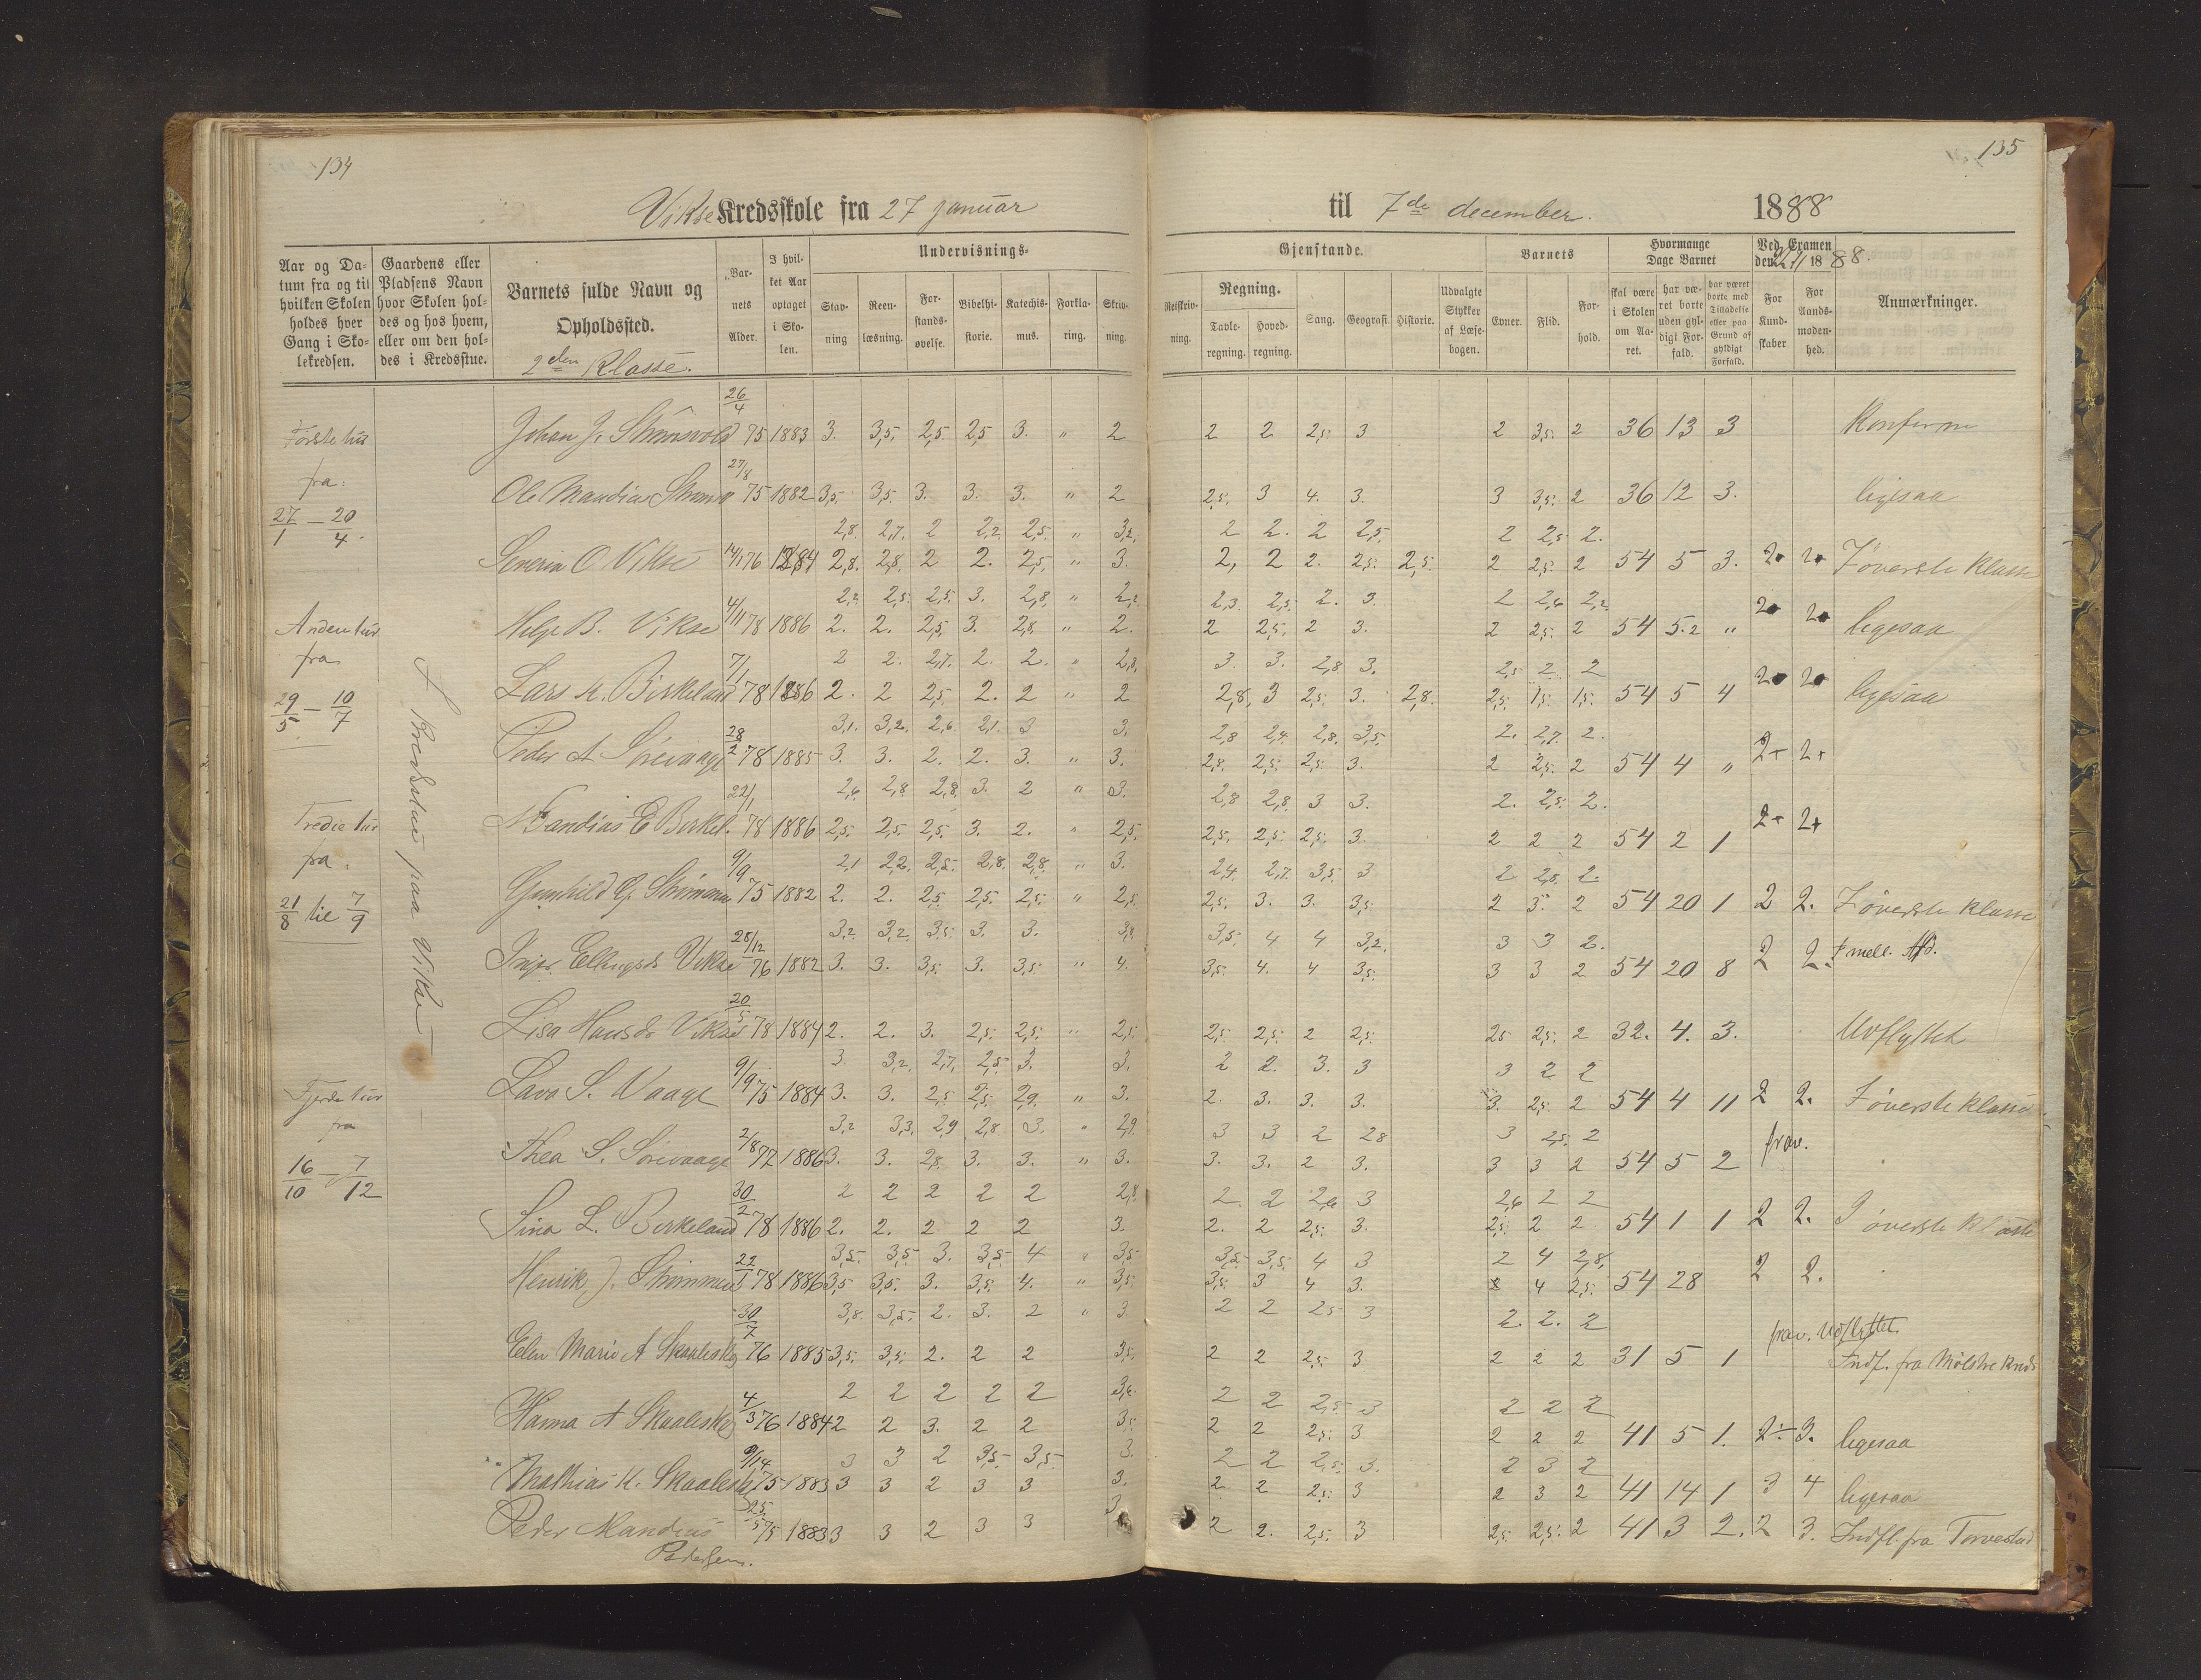 134
135
Vikse Kredsskole fra 27 januar til 7de december. 1888
Aar og Datum fra og til hvilken Skolen holdes hver Gang i Skolekredsen.
Gaardens eller Pladsens Navn hvor Skolen holdes og hos hvem, eller om den holdes i Kredsstue.
Barnets fulde Navn og Opholdssted.
2den Klasse.
Barnets Alder.
I hvilket Aar optaget i Skolen.
Undervisnings- Gjenstande.
Stavning
Reenlæsning.
Forstandsøvelse.
Bibelhistorie.
Katechismus.
Forklaring.
Skrivning.
Retskrivning.
Regning.
Tavleregning.
Hovedregning.
Sang.
Geografi.
Historie.
Udvalgte Stykker af Læsebogen.
Barnets
Evner.
Flid.
Forhold.
Hvormange Dage Barnet
skal være i Skolen om Aaret.
har været borte uden gyldigt Forfald.
har været borte med Tilladelse eller paa Grund af gyldigt Forfald.
Ved Examen den 22/11 1888.
For Kundskaber
For Aandsmodenhed.
Anmærkninger.
Første tur
fra:
27/1 — 20/4.
Anden tur
fra
29/5 — 10/7
Tredie tur
fra.
21/8 til 7/9
Fjerde tur
fra
16/10 — 7/12
I Kredsstue paa Vikse
26/4
Johan J. 75 1883 3. 3,5. 2,5. 2,5 3. " 2 2 2 2,5. 3 2 3,5. 2 36 13 3 Konferm
27/8
Ole Mandius 75 1882 3,5. 3,5. 3. 3. 3. " 2 2,5. 3 4. 3. 3 3,5. 2 36 12 3. ligesaa
2,8. 2,7. 2 2,2. 2,5. " 3,2. 2 2. 2 2,5. 2 2,5. 2.
Severin O. Vikse 14/1 76 1884 2,8. 2,8. 2 2. 2,5. " 3. 2, 2 2. 2,5. 2,5. 2 2,5. 2 54 5 3. 2 2 I øverste Klasse
2,2. 2,5. 2,5. 3. 2,8. " 2,2. 2,3. 2,5. 2. 3. 2 2,6 2,2
Helje B. Vikse 4/11 78 1886 2. 2. 2,5. 3. 2,8. " 2. 2 2,5. 2 3. 2 2,5. 2 54 5.2 " 2 2 ligesaa
2 2. 2,7. 2. 2. " 2,8. 3. 3. 2,8 3. 2,5 2. 2
Lars K. Birkeland 7/1 78 1886 2. 2 2,5. 2. 2 " 2 2,8. 3 2,5. 3. 2,8. 2,5. 1,5. 1,5. 54 5 4 2 2 ligesaa
3,1. 3,2. 2,6. 2,1. 3 3. 2,8 2,4. 2,8. 3,5. 2. 2,7. 2.
Peder A Sørevaage 28/2 78 1885 3. 3. 2. 2. 3. " 3. 2,8. 2,5. 2,5. 3. 2 2,5. 2 54 4 " 2+ 2+
2,6. 2,8 2,8. 3. 2 " 3. 2,8 2,8. 3 3. 2. 2,5. 2.
22/1 78 1886 2,5. 2,5. 2,5. 3. 2. " 2,5. 2,5. 2,5. 2,5. 3. 2 2 2 54 2 1 2+ 2+
2,1 2,2. 2,5. 2,8. 2,8. " 3. 2,4. 2,7. 3,5. 3 2 2,8. 2.
Gunhild 9/9 75 1882 2. 2. 2,5 2,5. 2,5. " 2,5. 2,5. 3. 3. 3,5. 2 3. 2 54 20 1 2 2. I øverste Klasse
3,2. 3,2. 3,5. 3. 3. 3,8. 3,5. 4 4 3,2. 3 3 2.
Vikse 28/12 76 1882 3. 3. 3,5. 3. 3,5. " 4. 3,5. 4. 4 3,5. 3 3 2 54 20 8 2 2. I mell. Afd.
Lisa Hansdr Vikse 20/5 78 1884 2. 2. 3. 2,5. 2,5. " 2,5. 2,5. 2,5. 2 2,5. 25 2,5. 2 32. 4. 3. Udflyttet
3 3,2. 2,7. 2,5. 3. 3. 2 2. 3. 3 3 2 2
S. Vaage 9/9 75 1884 3. 3. 2,5. 2,5. 2,9. " 3. 2. 3. 3. 3. 3. 2,5. 2 54 4 11 2 2. I øverste Klasse
3,2 3,3. 2,9 2,8. 3. " 2,9. 3 3 2 28 3 2,5. 2
Thea S. Sørevaage 2/8 77 1886 3. 3. 2,8. 3. 3. " 3. 3. 3. 2 3. 3 3 2 54 5 2 frav.
2 2 2 2 2 2,8. 2 2 2,6 3 2,6 2 2
Sina L. Birkeland 30/2 78 1886 2. 2. 2 2 2 3. 2. 2 2,5. 3. 2,5. 2 2 54 1 1 2 2. I øverste Klasse
3,5. 3,5. 3. 3,5. 4 " 3,5. 3,5. 3,5. 4 3 2 4 2,8.
Henrik J. 22/1 78 1886 3,5 3,5. 3. 3,5. 4. " 3,5. 3,5. 3 4 3. 4 2,5. 54 28 2 2.
3,8. 3,5. 2. 3. 2 " 3. 2 2 2,5 3 2. 2. 2
Elen Marie A Skaaleskj 30/7 76 1885 3,5. 3,5. 2. 2 2 3,5. 2 2 2,5. 3 2 2 2 31 5 1 frav. Udflyttet.
Indf. fra Mølstre Kreds
2 2 2 2 2 3,6. 2 2 2,5. 3 2 2 2
Hanna A Skaaleskj 4/3 76 1884 2 2 3. 2 2 3,5 2 2 2,5. 3 2 2 2 41 5 1. 2÷ 3. ligesaa
3 3 2 3,5. 3,5. 3. 2 2 2,5. 3. 2 3 2
Mathias K. Skaaleskj 75 1883 3 3 2 3 3 3. 2 2 2,5. 3 2 3 2 41 14 1 3 4 ligesaa
Peder Mandius 25/5 75 1883 3 3 2 3 3 3. 2 2. 2,5. 3 2,5. 2,5. 2 41 3 2. 2 3. Indfl. fra Torvestad
Pedersen.